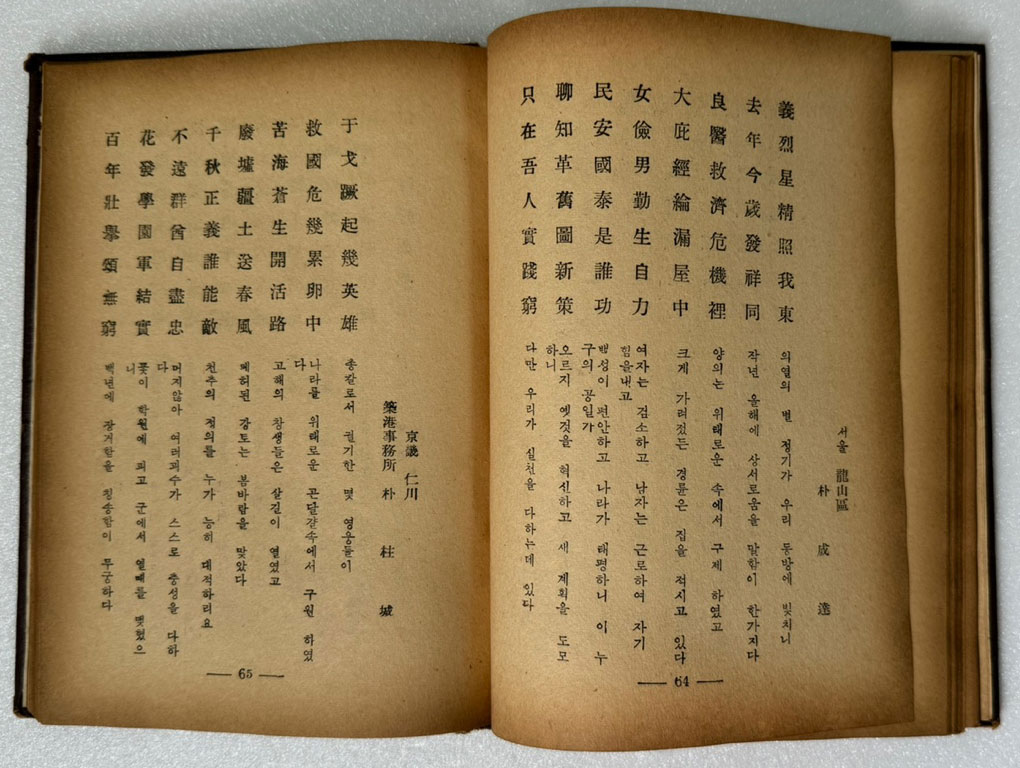 서울 龍山區
朴 成 達
義烈星精照我東
去年今歲發祥同
良醫救濟危機裡
大庇經綸漏屋中
女儉男勤生自力
民安國泰是誰功
聊知革舊圖新策
只在吾人實踐窮
의열의 별 정기가 우리 동방에 빛치니
작년 올해에 상서로움을 말함이 한가지다
양의는 위태로운 속에서 구제 하였고
크게 가려젔든 경륜은 집을 적시고 있다
여자는 검소하고 남자는 근로하여 자기
힘을내고
백성이 편안하고 나라가 태평하니 이 누
구의 공일가
오르지 옛것을 혁신하고 새 계획을 도모
하니
다만 우리가 실천을 다하는데 있다
— 64 —
京畿 仁川
築港事務所 朴 柱 城
于戈蹶起幾英雄
救國危幾累卵中
苦海蒼生開活路
廢墟疆土送春風
千秋正義誰能敵
不遠群酋自盡忠
花發學園軍結實
百年壯擧頌無窮
총칼로서 궐기한 몇 영웅들이
나라를 위태로운 곤달걀속에서 구원 하였
다
고해의 창생들은 살길이 열였고
폐허된 강토는 봄바람을 맞았다
천추의 정의를 누가 능히 대적하리요
머지않아 여러괴수가 스스로 충성을 다하
다
꽃이 학원에 피고 군에서 열매를 맺혔으
니
백년에 장거함을 칭송함이 무궁하다
— 65 —